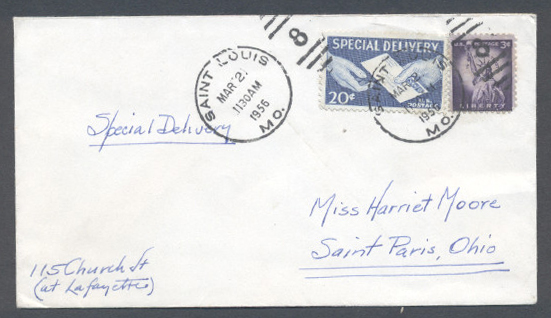 SAINT LOUIS
MAR 2
1130AM
1956
MO.
8
SPECIAL DELIVERY
20¢
U.S. POSTAGE
3¢
LIBERTY
SAINT LOUIS
MAR 2
195
MO.
8
Special Delivery
Miss Harriet Moore
Saint Paris, Ohio
115 Church St
(at Lafayette)